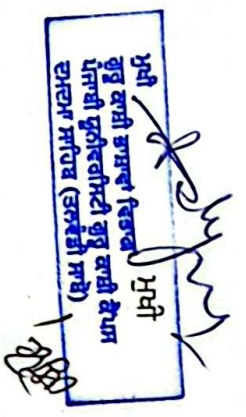 ਮੁਖੀ
ਗੁਰੂ ਕਾਸ਼ੀ ਭਾਸ਼ਾਵਾਂ ਵਿਭਾਗ
ਪੰਜਾਬੀ ਯੂਨੀਵਰਸਿਟੀ ਗੁਰੂ ਕਾਸ਼ੀ ਕੈਂਪਸ
ਦਮਦਮਾ ਸਾਹਿਬ (ਤਲਵੰਡੀ ਸਾਬੋ)
ਮੁਖੀ